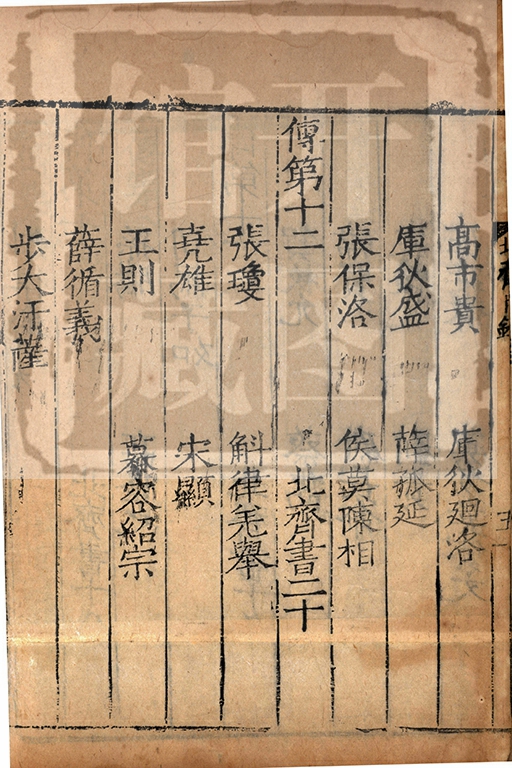 高市貴 庫狄廻洛
庫狄盛 薛孤延
張保洛 侯莫陳相
傳第十二 北齊書二十
張瓊 斛律羌舉
堯雄 宋顯
王則 慕容紹宗
薛循義
步大汗薩